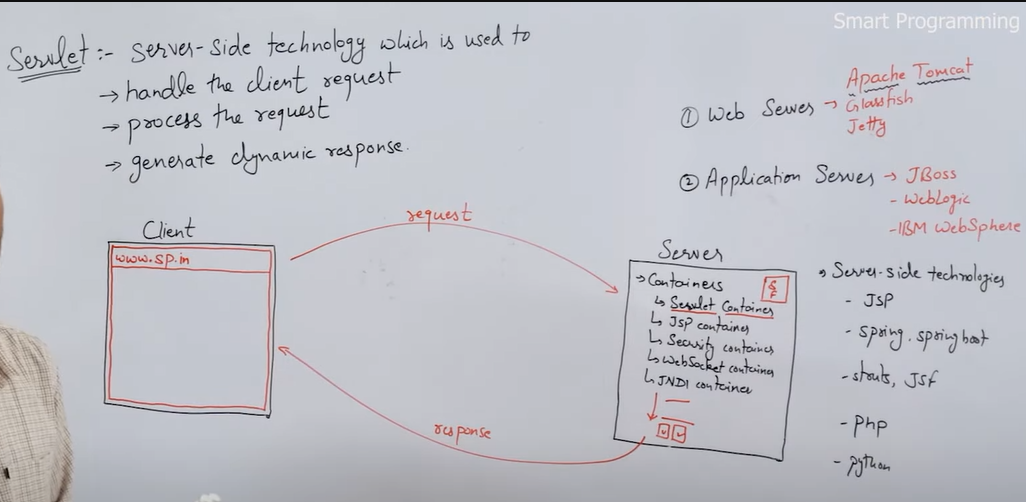 Smart Programming
Servlet :- server-side technology which is used to
→ handle the client request
→ process the request
→ generate dynamic response.
① Web Server → Apache Tomcat
Glassfish
Jetty
② Application Server → JBoss
- WebLogic
- IBM WebSphere
Client
www.sp.in
request
response
Server
→ Containers
↳ Servlet Container
↳ JSP container
↳ Security container
↳ WebSocket container
↳ JNDI container
S
F
→ Server-side technologies
- JSP
- spring, spring boot
- struts, JSF
- Php
- python